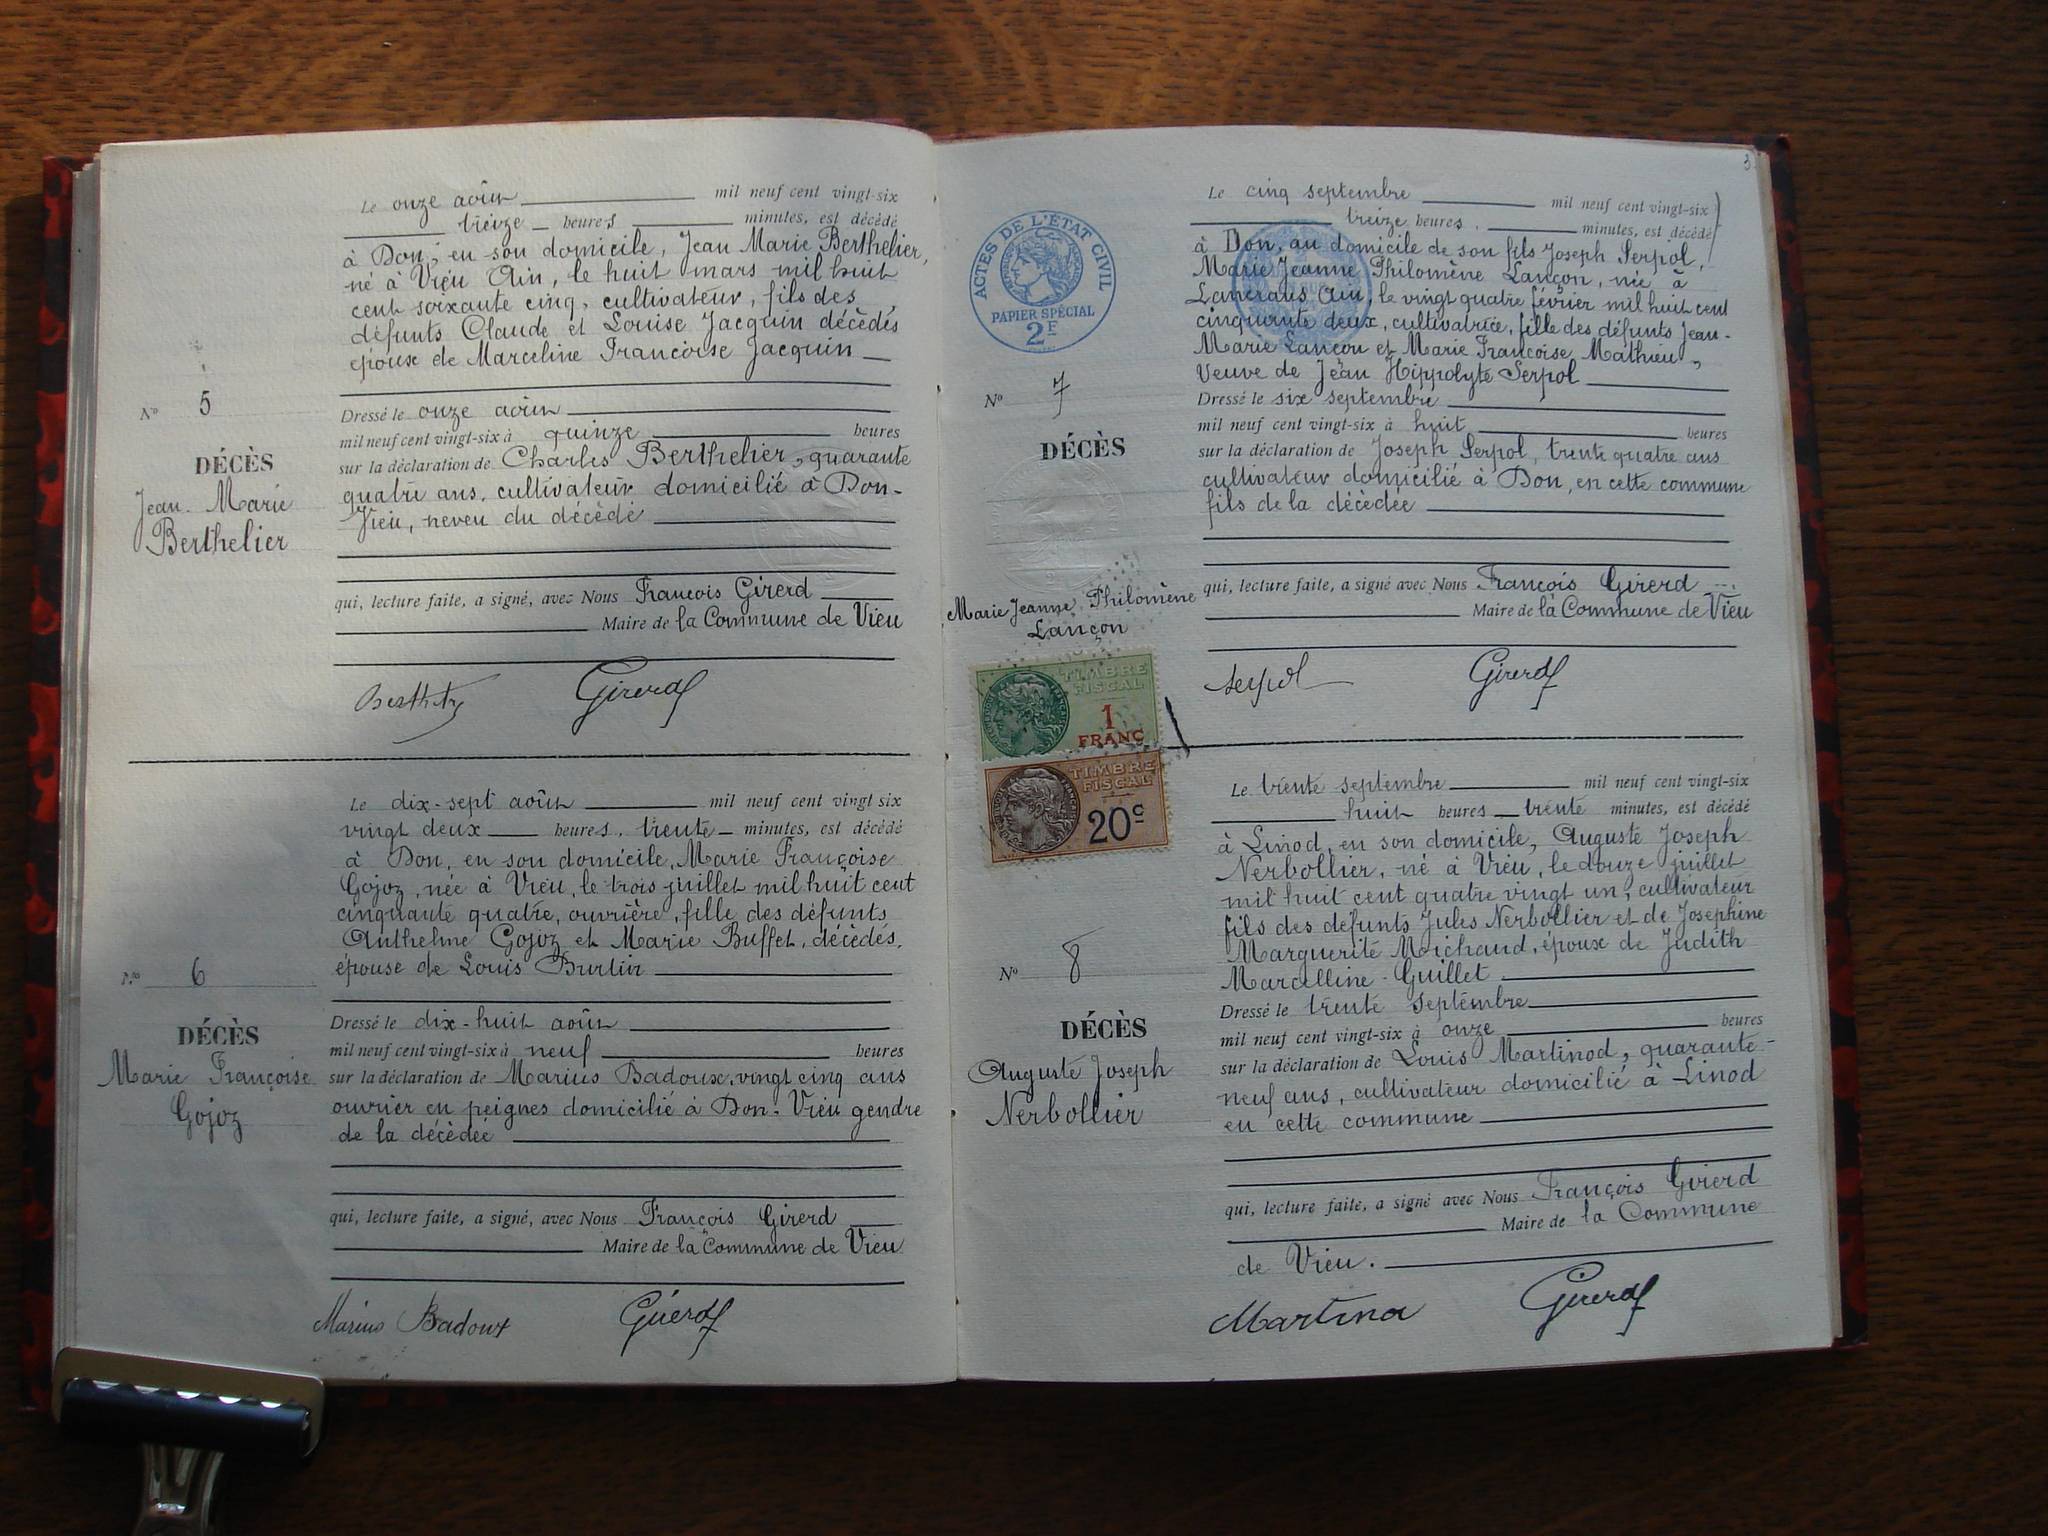 Le onze août mil neuf cent vingt-six
treize heures minutes, est décédé
à Don, en son domicile, Jean Marie Berthelier,
né à Vieu Ain, le huit mars mil huit
cent soixante cinq, cultivateur, fils des
défunts Claude et Louise Jacquin décédés
époux de Marceline Françoise Jacquin
No 5
DÉCÈS
Jean-Marie
Berthelier
Dressé le onze août
mil neuf cent vingt-six à quinze heures
sur la déclaration de Charles Berthelier, quarante
quatre ans, cultivateur domicilié à Don-
Vieu, neveu du décédé
qui, lecture faite, a signé, avec Nous François Girerd
Maire de la Commune de Vieu
Girerd
Le dix-sept août mil neuf cent vingt six
vingt deux heures, trente minutes, est décédé
à Don, en son domicile, Marie Françoise
Gojoz, née à Vieu, le trois juillet mil huit cent
cinquante quatre, ouvrière, fille des défunts
Anthelme Gojoz et Marie Buffet, décédés,
épouse de Louis Burtin
No 6
DÉCÈS
Marie Françoise
Gojoz
Dressé le dix-huit août
mil neuf cent vingt-six à neuf heures
sur la déclaration de Marius Badoux, vingt cinq ans
ouvrier en peignes domicilié à Don-Vieu gendre
de la décédée
qui, lecture faite, a signé, avec Nous François Girerd
Maire de la Commune de Vieu
Marius Badoux Girerd
3
Le cinq septembre mil neuf cent vingt-six
treize heures, minutes, est décédé
à Don, au domicile de son fils Joseph Serpol,
Marie Jeanne Philomène Lançon, née à
Lancrans Ain, le vingt quatre février mil huit cent
cinquante deux, cultivatrice, fille des défunts Jean-
Marie Lançon et Marie Françoise Mathieu,
Veuve de Jean Hippolyte Serpol
ACTES DE L'ÉTAT CIVIL
PAPIER SPÉCIAL
2F
No 7
DÉCÈS
Marie Jeanne Philomène
Lançon
Dressé le six septembre
mil neuf cent vingt-six à huit heures
sur la déclaration de Joseph Serpol, trente quatre ans
cultivateur domicilié à Don, en cette commune
fils de la décédée
qui, lecture faite, a signé avec Nous François Girerd
Maire de la Commune de Vieu
Serpol Girerd
TIMBRE
FISCAL
1
FRANC
TIMBRE
FISCAL
20c
Le trente septembre mil neuf cent vingt-six
huit heures trente minutes, est décédé
à Linod, en son domicile, Auguste Joseph
Nerbollier, né à Vieu, le douze juillet
mil huit cent quatre vingt un, cultivateur
fils des défunts Jules Nerbollier et de Josephine
Marguerite Michaud, époux de Judith
Marcelline-Guillet
No 8
DÉCÈS
Auguste Joseph
Nerbollier
Dressé le trente septembre
mil neuf cent vingt-six à onze heures
sur la déclaration de Louis Martinod, quarante-
neuf ans, cultivateur domicilié à Linod
en cette commune
qui, lecture faite, a signé avec Nous François Girerd
Maire de la Commune
de Vieu.
Martinod Girerd